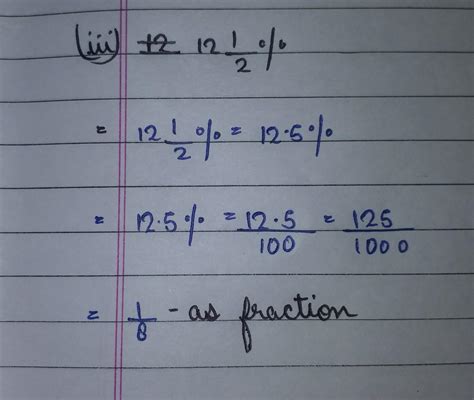 (iii) 12 12 1/2 %
= 12 1/2 % = 12.5%
= 12.5% = 12.5/100 = 125/1000
= 1/8 - as fraction